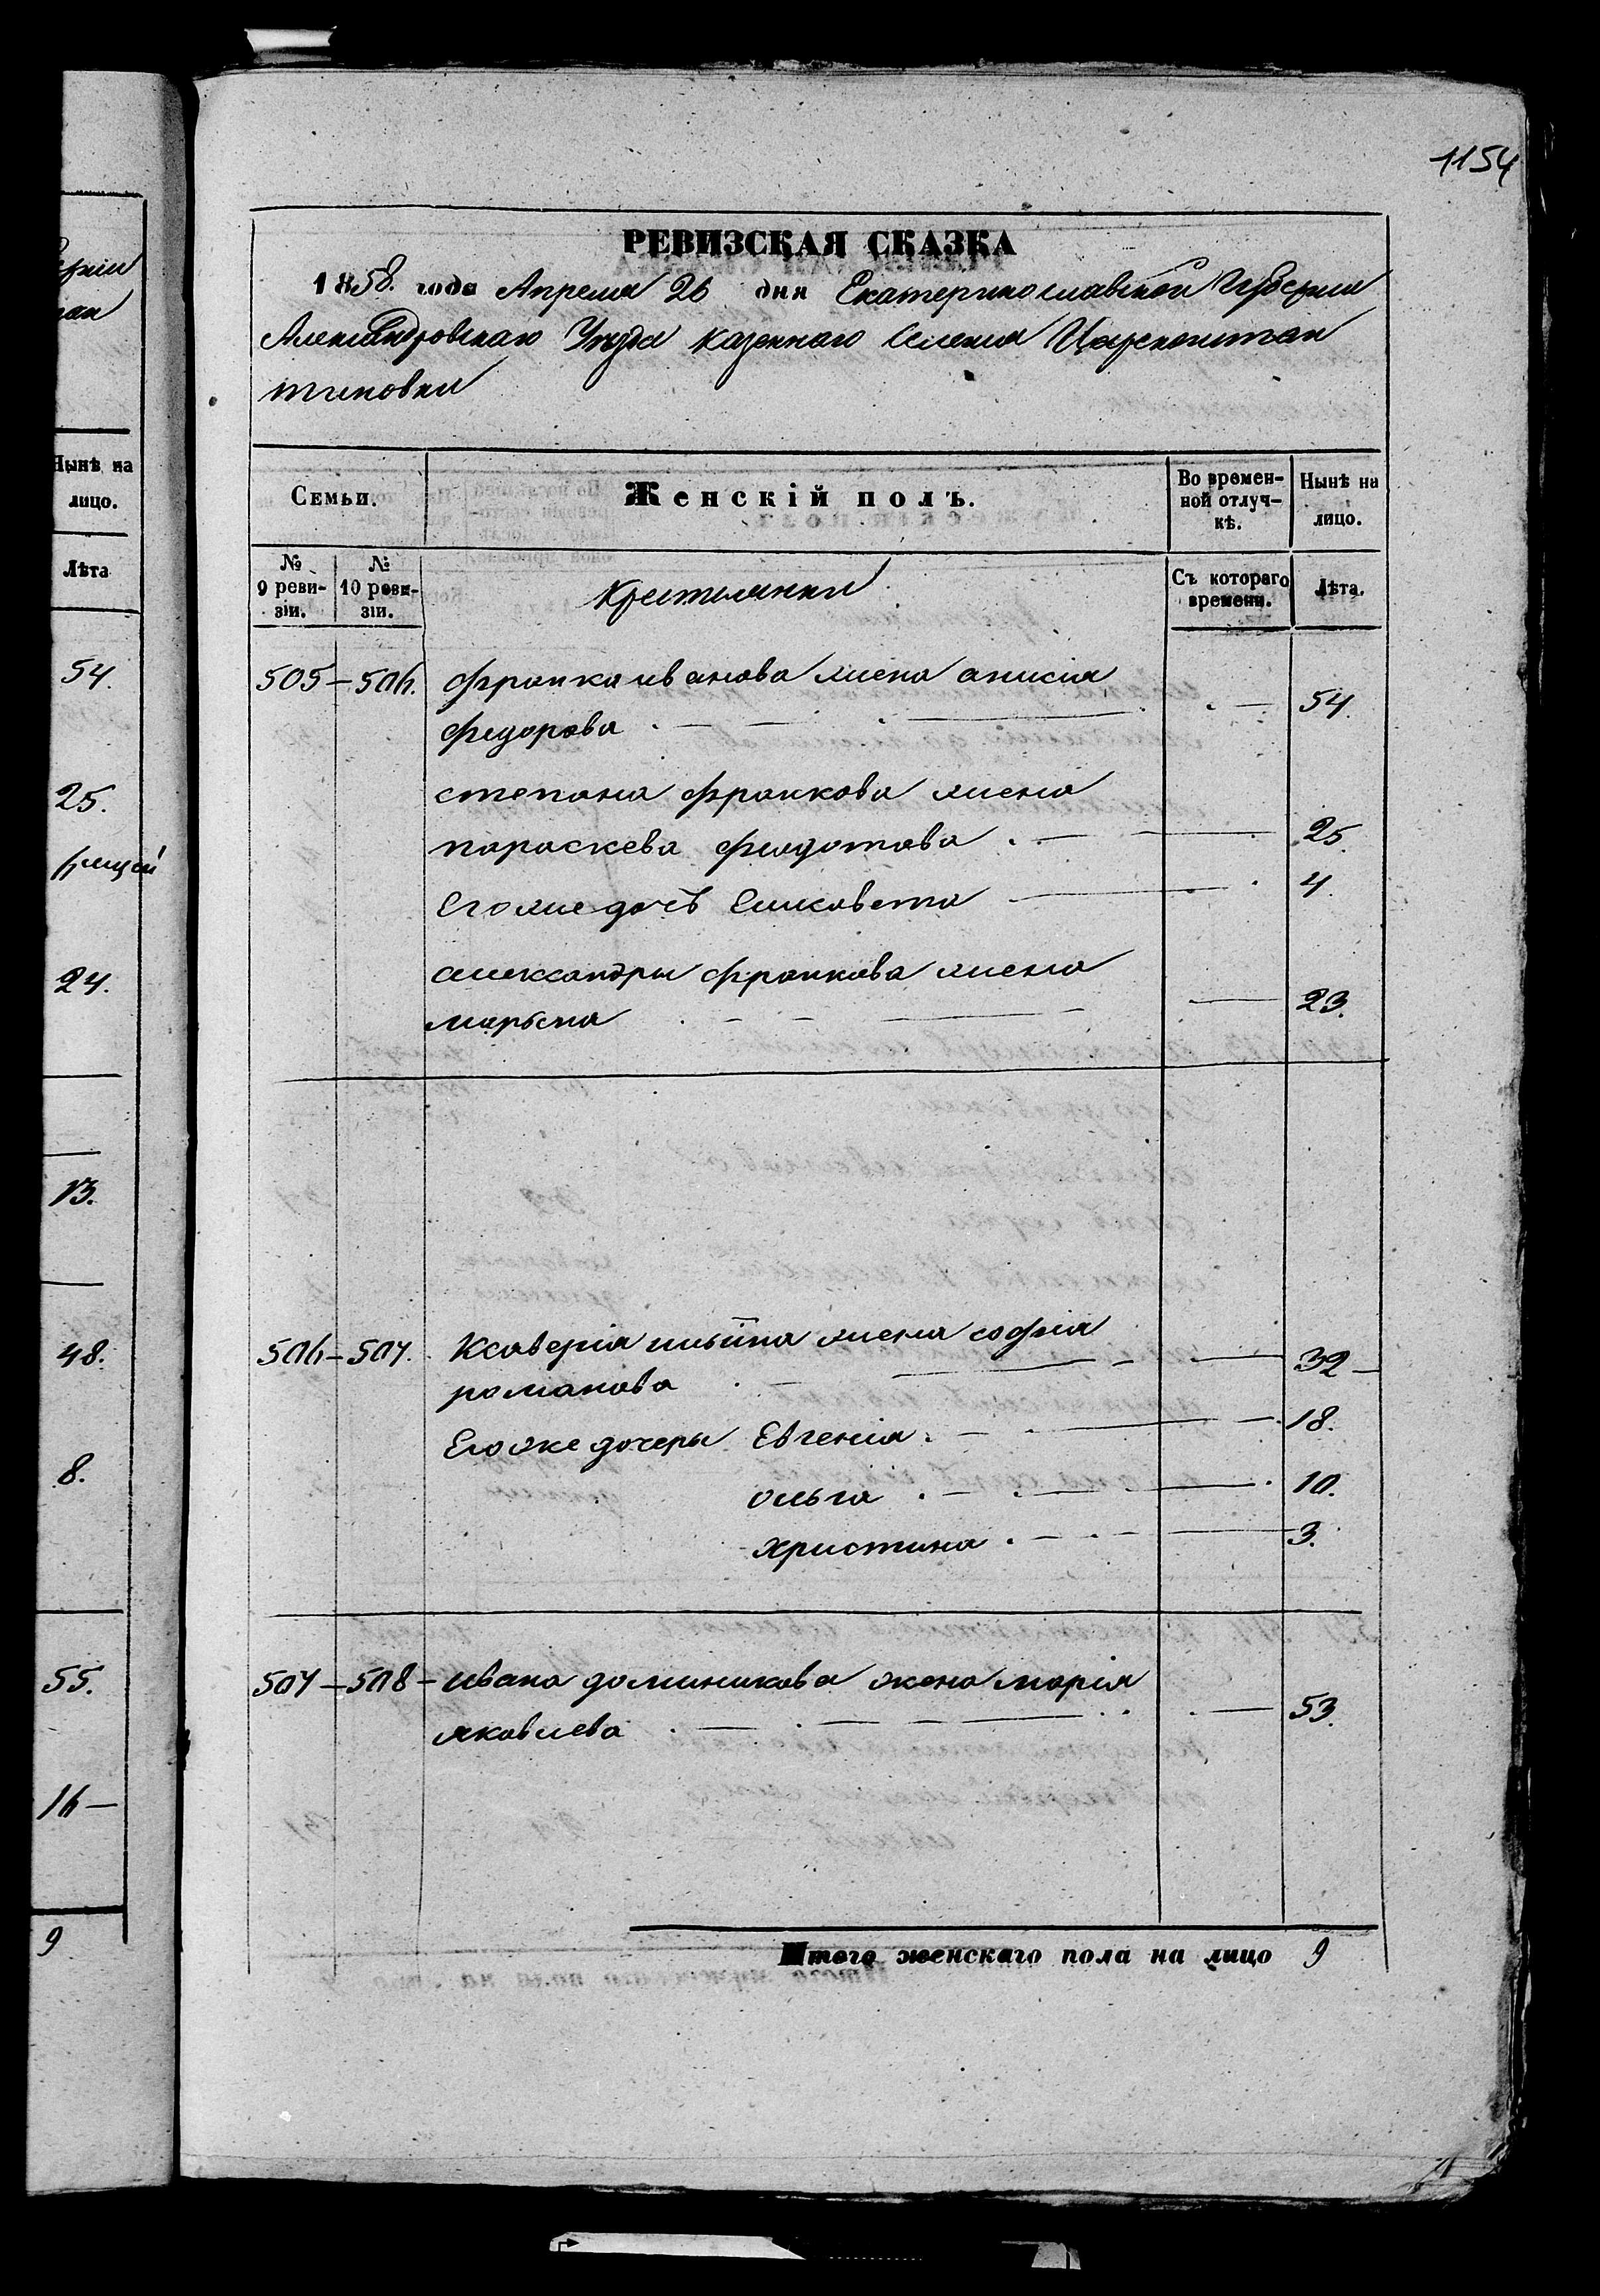 1154
РЕВИЗСКАЯ СКАЗКА
1858. года Апреля 26 дня Екатеринославской Губернии
Александровскаго Уезда казеннаго Селения Цареконстан
тиновки
Семьи.
Женскій полъ.
Во времен-
ной отлуч-
кѣ.
Нынѣ на
лицо.
№
9 реви-
зіи.
№
10 реви-
зіи.
Крестьянки
Съ котораго
времени.
Лѣта.
505 – 506. франка иванова жена анисія
федорова 54.
степана франкова жена
параскева федотова 25.
Его же дочь Елисавета 4.
александры франкова жена
марьяна 23.
506 – 507. Ксаверія ильина жена софія
романова 32
Его же дочеры Евгенія 18.
ольга 10.
христина 3.
507 – 508 – ивана доминикова жена марія
яковлева 53.
Итого женскаго пола на лицо 9
Нынѣ на
лицо.
Лѣта
54.
25.
24.
13.
48.
8.
55.
16
9